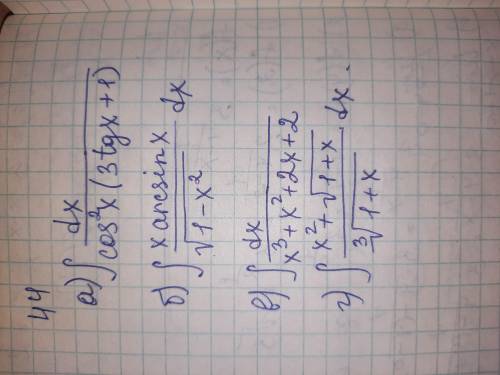 44
а) ∫ dx / (cos²x (3 tg x + 1))
б) ∫ (x arcsin x / √(1-x²)) dx
в) ∫ dx / (x³ + x² + 2x + 2)
г) ∫ ((x² + √(1+x)) / ∛(1+x)) dx.